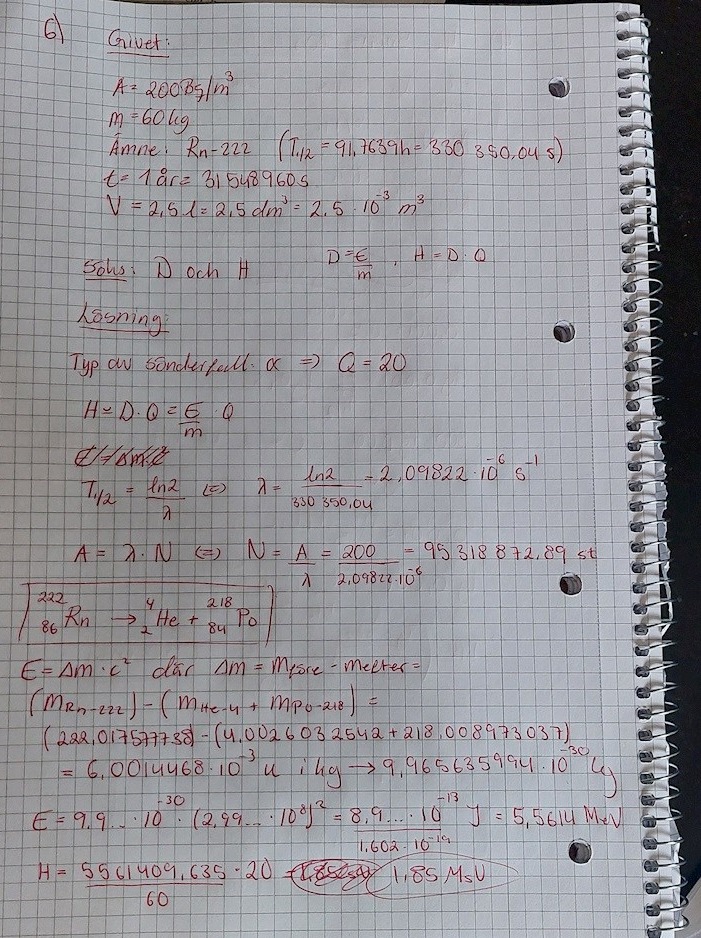 6)
Givet:
A = 200 Bq/m³
m = 60 kg
Ämne: Rn-222 (T₁/₂ = 91,7639h = 330 350,04 s)
t = 1 år = 31548960 s
V = 2,5 l = 2,5 dm³ = 2,5 · 10⁻³ m³
Söks: D och H D = E/m , H = D · Q
Lösning:
Typ av sönderfall: α => Q = 20
H = D · Q = E/m · Q
T₁/₂ = ln2/λ <=> λ = ln2/330 350,04 = 2,09822 · 10⁻⁶ s⁻¹
A = λ · N <=> N = A/λ = 200/2,09822·10⁻⁶ = 95 318 872,89 st
²²²₈₆Rn → ⁴₂He + ²¹⁸₈₄Po
E = Δm · c² där Δm = mföre - mefter =
(mRn-222) - (mHe-4 + mPo-218) =
(222,017577738) - (4,0026032542 + 218,008973037)
= 6,0014468 · 10⁻³ u i kg → 9,965635994 · 10⁻³⁰ kg
E = 9,9... · 10⁻³⁰ · (2,99... · 10⁸)² = 8,9... · 10⁻¹³ J / 1,602 · 10⁻¹⁹ = 5,5614 MeV
H = 5561409,635/60 · 20 = 1,85 MSV